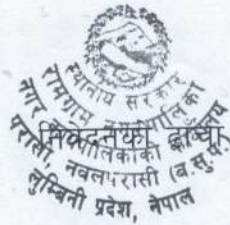 स्थानीय सरकार
रामग्राम नगरपालिका
नगर कार्यपालिकाको कार्यालय
निवेदनको ढाँचा
परासी, नवलपरासी (ब.सु.प.)
लुम्बिनी प्रदेश, नेपाल